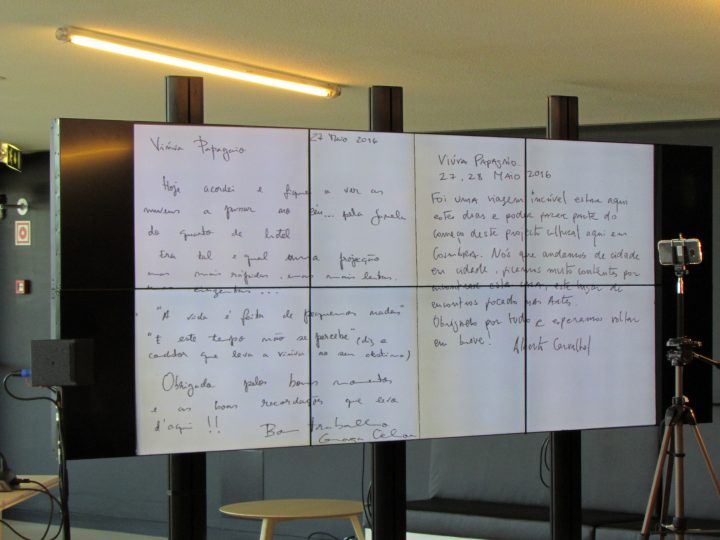 Viúva Papagaio 27 Maio 2016
Hoje acordei e fiquei a ver as
nuvens a passar no céu... pela janela
do quarto de hotel
Era tal e qual uma projecção
umas mais rápidas, umas mais lentas.
"A vida é feita de pequenos nadas"
"E este tempo não se percebe" (diz o
condutor que leva a viúva ao seu destino)
Obrigada pelos bons momentos
e as boas recordações que levo
d'aqui !!
Bom trabalho
Viúva Papagaio
27, 28 MAIO 2016
Foi uma viagem incrível estar aqui
estes dias e poder fazer parte do
começo deste projecto cultural aqui em
Coimbra. Nós que andamos de cidade
em cidade, ficamos muito contentes por
encontrar esta casa, este lugar de
encontros focado nas Artes.
Obrigado por tudo e esperamos voltar
em breve! Alberto Carvalhal